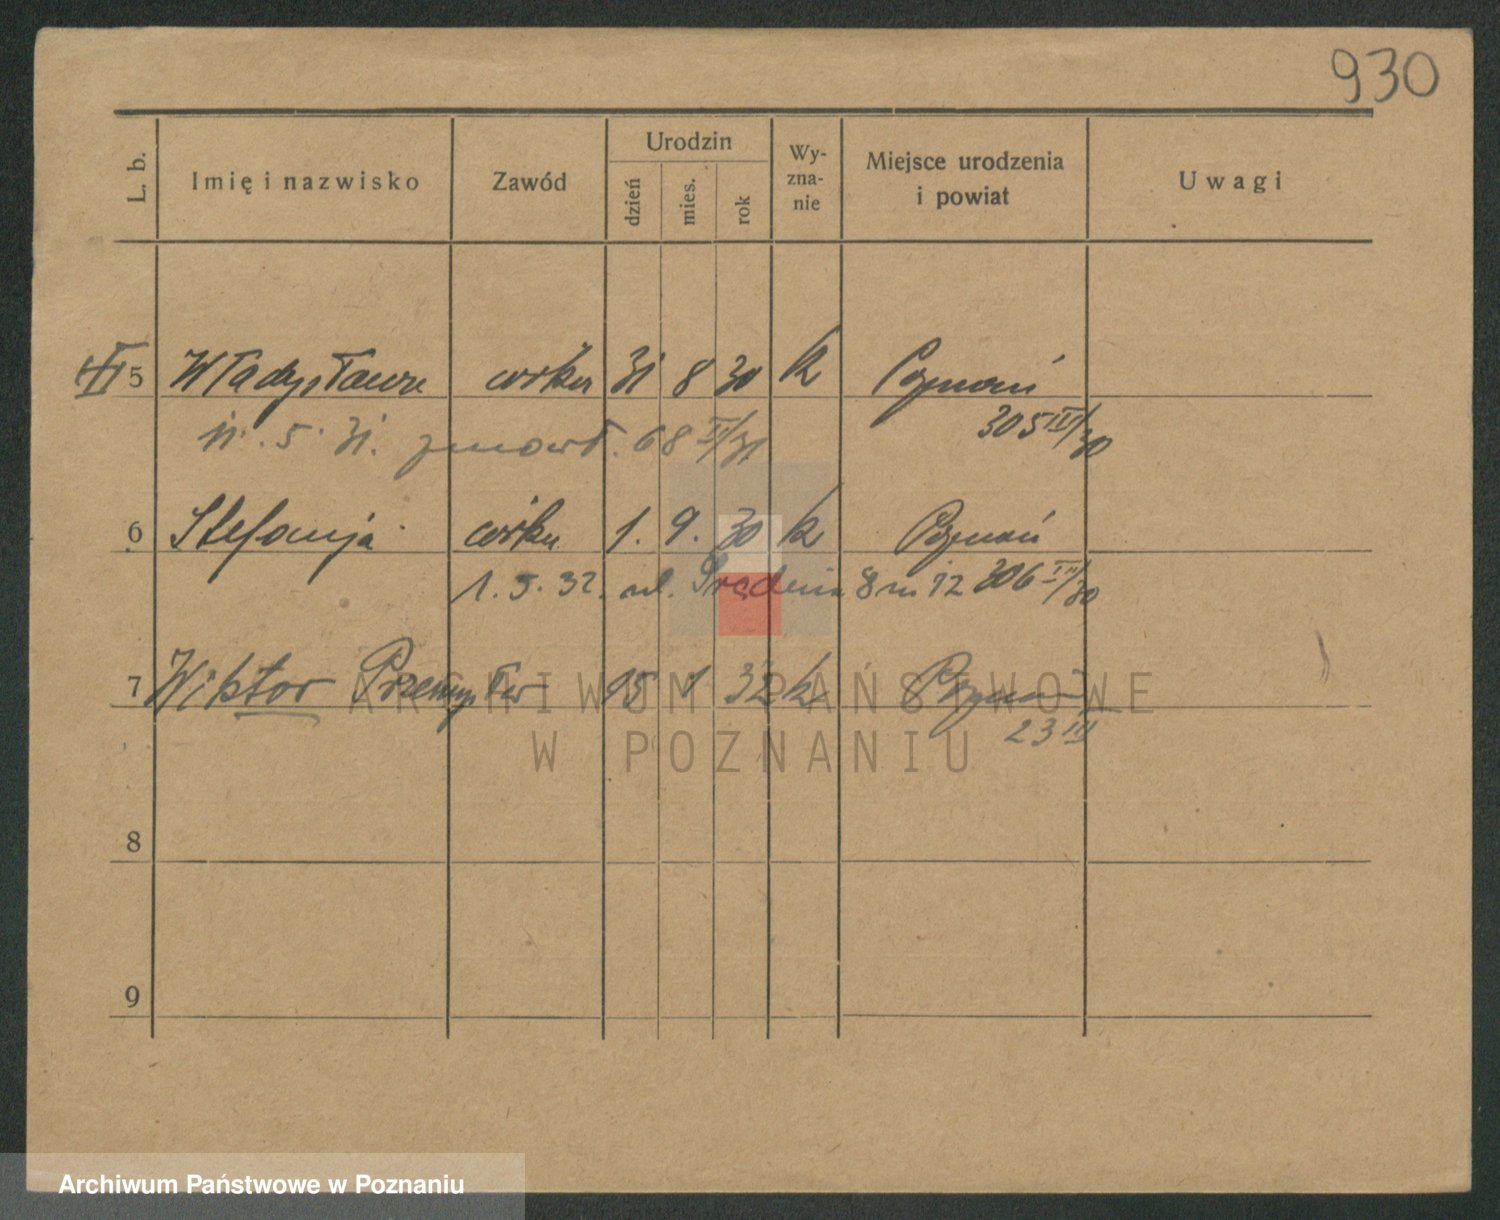 930
L. b. Imię i nazwisko Zawód Urodzin dzień mies. rok Wy-zna-nie Miejsce urodzenia i powiat Uwagi
5 Władysława córka 31 8 30 k Poznań
11. 5. 31. zmarł. 68 II/31 305 IV/30
6 Stefanja córka 1. 9. 30 k Poznań
1. 5. 32. ul. 8 m 12 306 /30
7 Wiktor Przemysław 15 1 32 k Poznań
23 III
ARCHIWUM PAŃSTWOWE
W POZNANIU
8
9
Archiwum Państwowe w Poznaniu